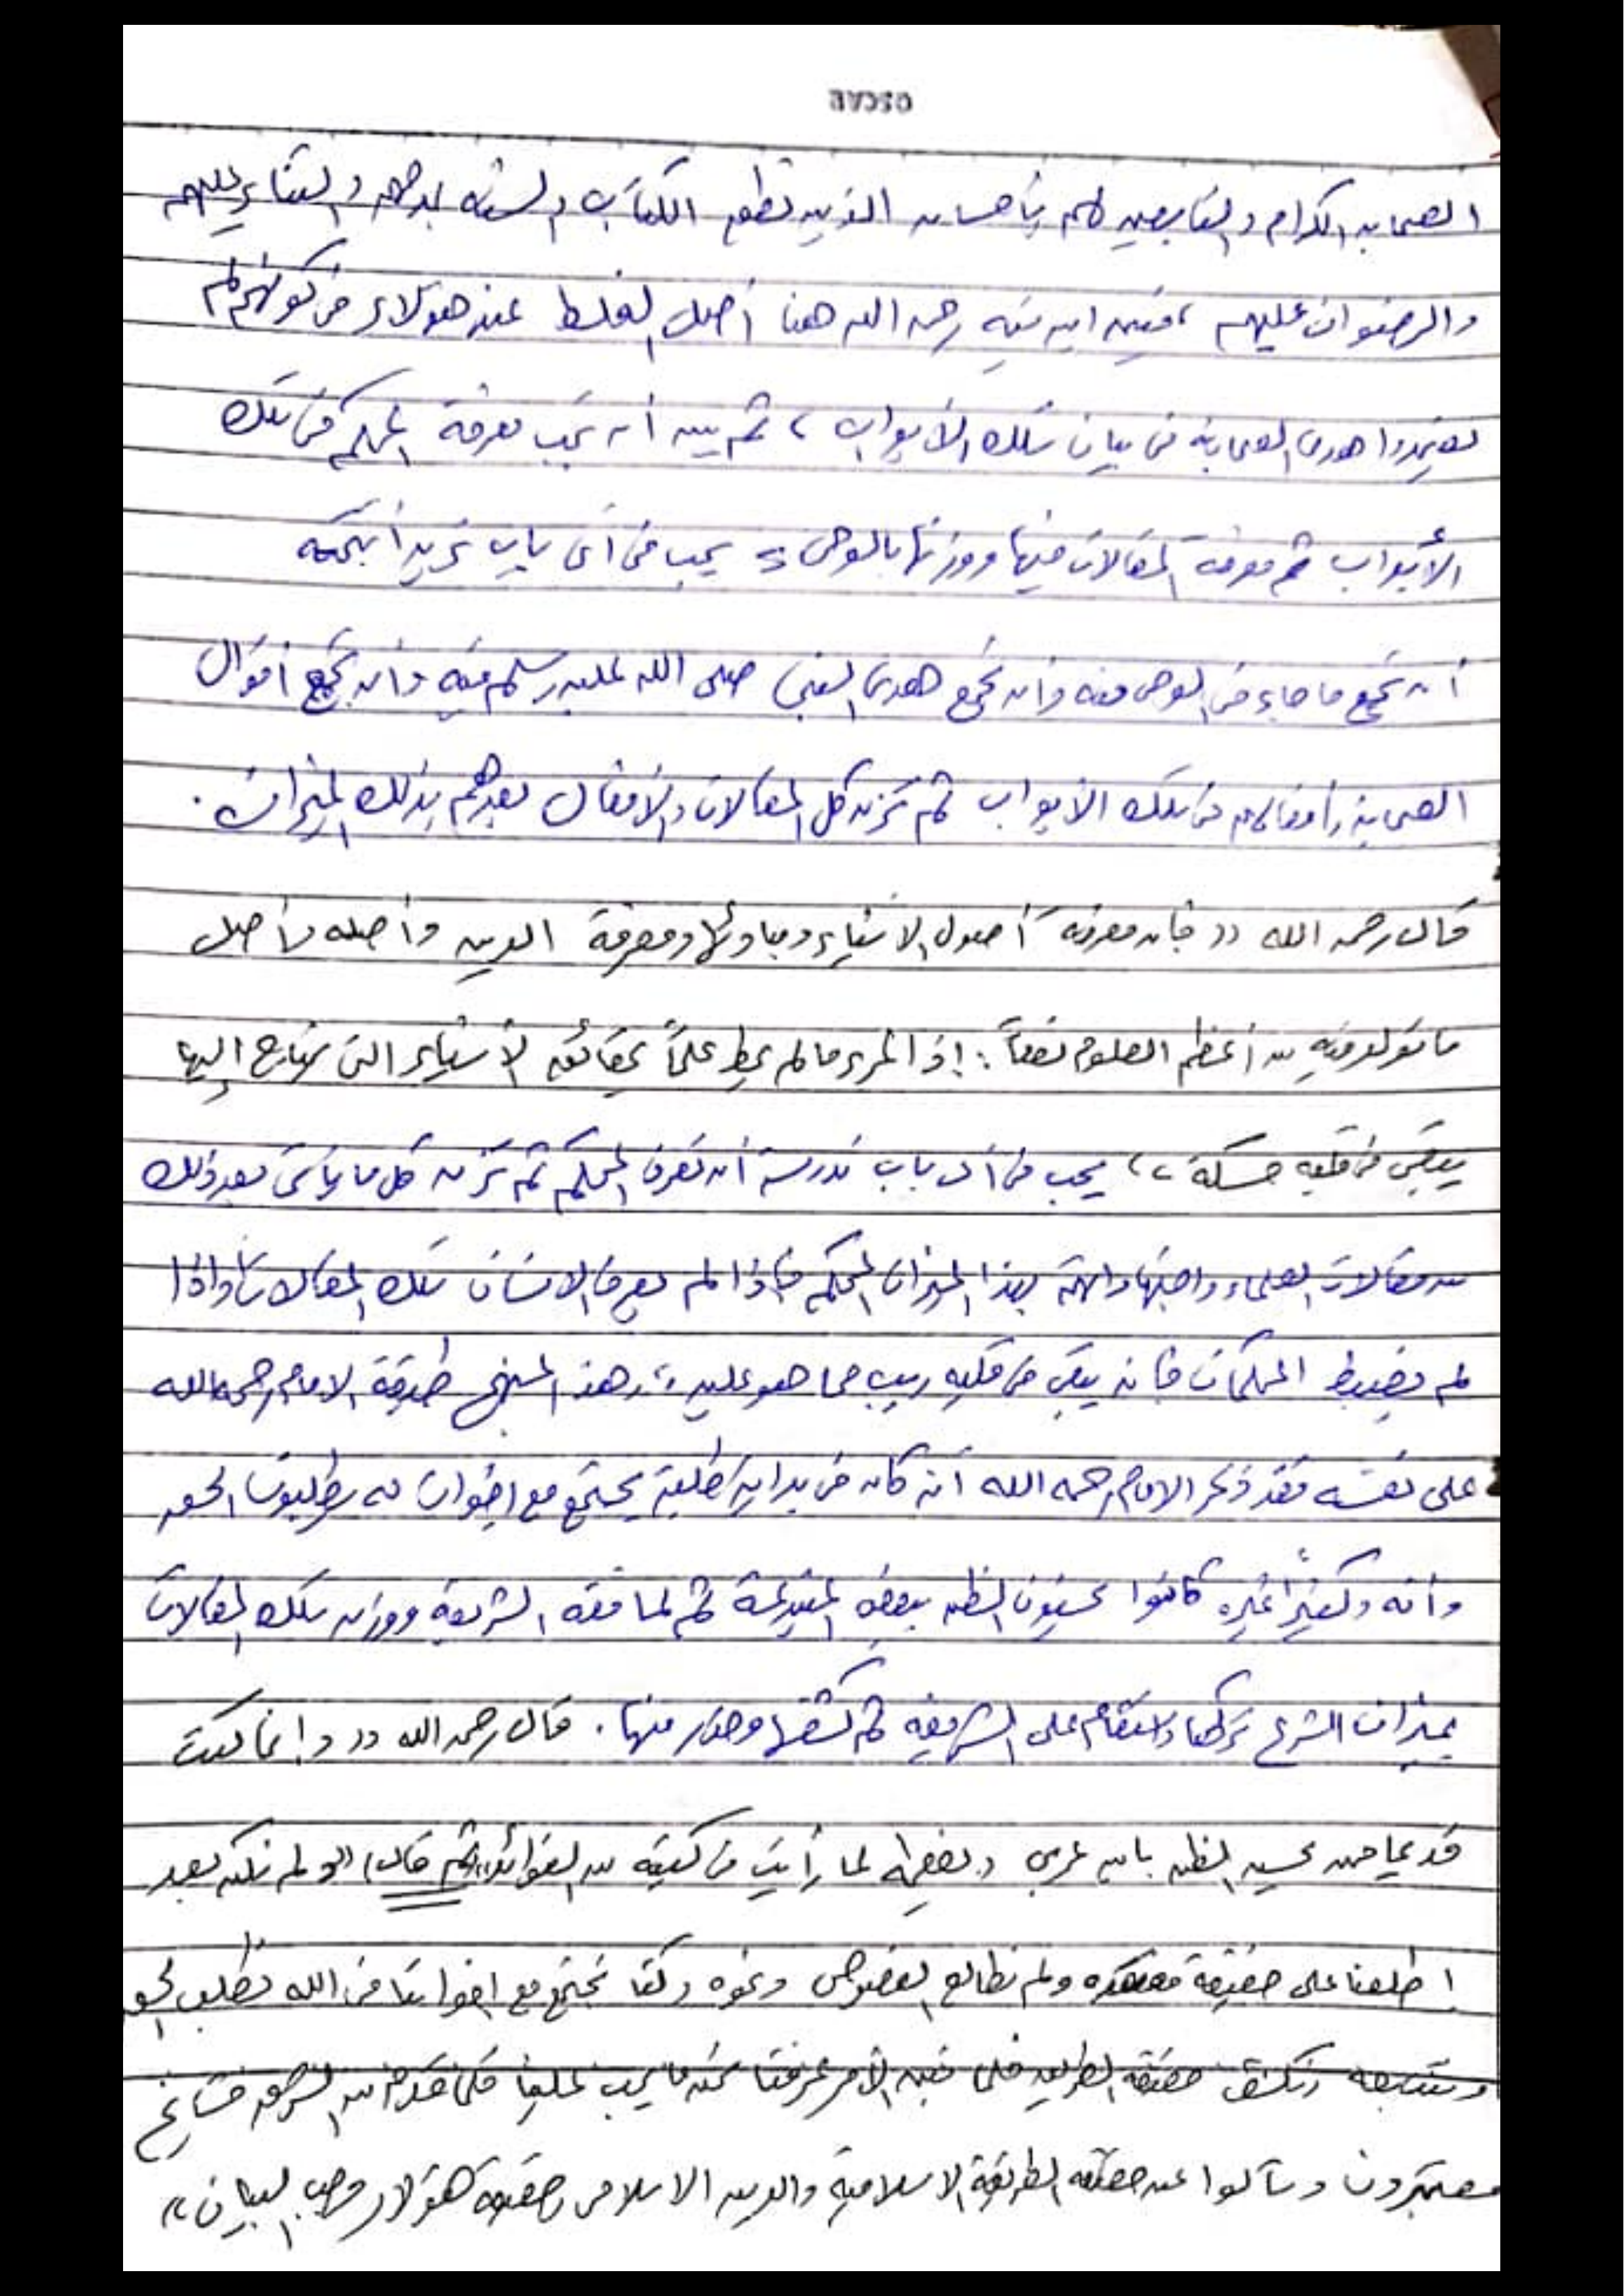 OSCAR
الصحابه الكرام والتابعين لهم بأحسان الذين نطق الكتاب والسنه بمدحهم والثناء عليهم
والرضوان عليهم ، فبين ابن تيميه رحمه الله هنا أصل الغلط عند هؤلاء من كونهم لم
يعتمدوا هدى الصحابة فى بيان تلك الأبواب ، ثم بين أنه يجب معرفة المحكم فى تلك
الأبواب ثم معرفة المقالات فيها ووزنها بالوحى = يجب فى أى باب تريد أن
أن تجمع ما جاء فى الوحى فيه وأن تجمع هدى النبى صلى الله عليه وسلم فيه وأن تجمع أقوال
الصحابة وأفعالهم فى تلك الأبواب ثم تزن كل المقالات والأفعال بعدهم بذلك الميزان .
قال رحمه الله (( فإن معرفة أصول الاشياء ومبادئها ومعرفة الدين وأصله وأصل
ما تولد فيه من أعظم العلوم نفعاً : إذ المرء ما لم يحط علماً بحقائق الأشياء التى يحتاج إليها
يبقى فى قلبه حسكة )) يجب فى أى باب تدرسه أن تعرف المحكم ثم تزن كل ما يأتى بعد ذلك
من مقالات العلماء واجتهاداتهم بهذا الميزان المحكم فإذا لم يعرف الانسان تلك المقالات وإذا
لم يضبط المحكمات فإنه يبقى فى قلبه ريب مما هو عليه ، وهذا المنهج طبقه الامام رحمه الله
على نفسه فقد ذكر الامام رحمه الله أنه كان فى بداية طلبه يجتمع مع إخوان له يطلبون الحق
وأنه وكثيراً غيره كانوا يحسنون الظن ببعض المبتدعة ثم لما فقه الشريعة ووزن تلك المقالات
بميزان الشرع تركها واستقام على الشريعة ثم كشفها وحذر منها . قال رحمه الله (( وإنما كنت
قديما ممن يحسن الظن بابن عربى ويعظمه لما رأيت فى كتبه من الفوائد )) ثم قال (( ولم نكن بعد
اطلعنا على حقيقة مقصوده ولم نطالع الفصوص ونحوه وكنا نجتمع مع اخواننا فى الله نطلب الحق
ونتبعه ونكشف حقيقة الطريق فلما تبين الأمر عرفنا نحن ما يجب علينا فلما قدم من المشرق مشايخ
معتبرون وسألوا عن حقيقة الطريقة الاسلامية والدين الاسلامى وحقيقة هؤلاء وجب البيان ))